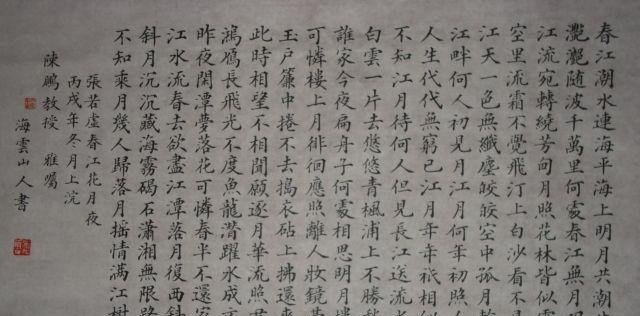 春江潮水連海平海上明月共潮
灩灩随波千萬里何處春江無月
江流宛轉繞芳甸月照花林皆似
空里流霜不覺飛汀上白沙看不
江天一色無纖塵皎皎空中孤月
江畔何人初見月江月何年初照人
人生代代無窮已江月年年祇相似
不知江月待何人但見長江送流水
白雲一片去悠悠青楓浦上不勝
誰家今夜扁舟子何處相思明月
可憐樓上月徘徊應照離人妝鏡
玉户簾中捲不去搗衣砧上拂還
此時相望不相聞願逐月華流照
鴻鴈長飛光不度魚龍潛躍水成
昨夜閑潭夢落花可憐春半不還
江水流春去欲盡江潭落月復西斜
斜月沉沉藏海霧碣石瀟湘無限路
不知乘月幾人歸落月摇情满江樹
張若虚春江花月夜
丙戌年冬月上浣
陳鵬教授 雅囑
海雲山人書